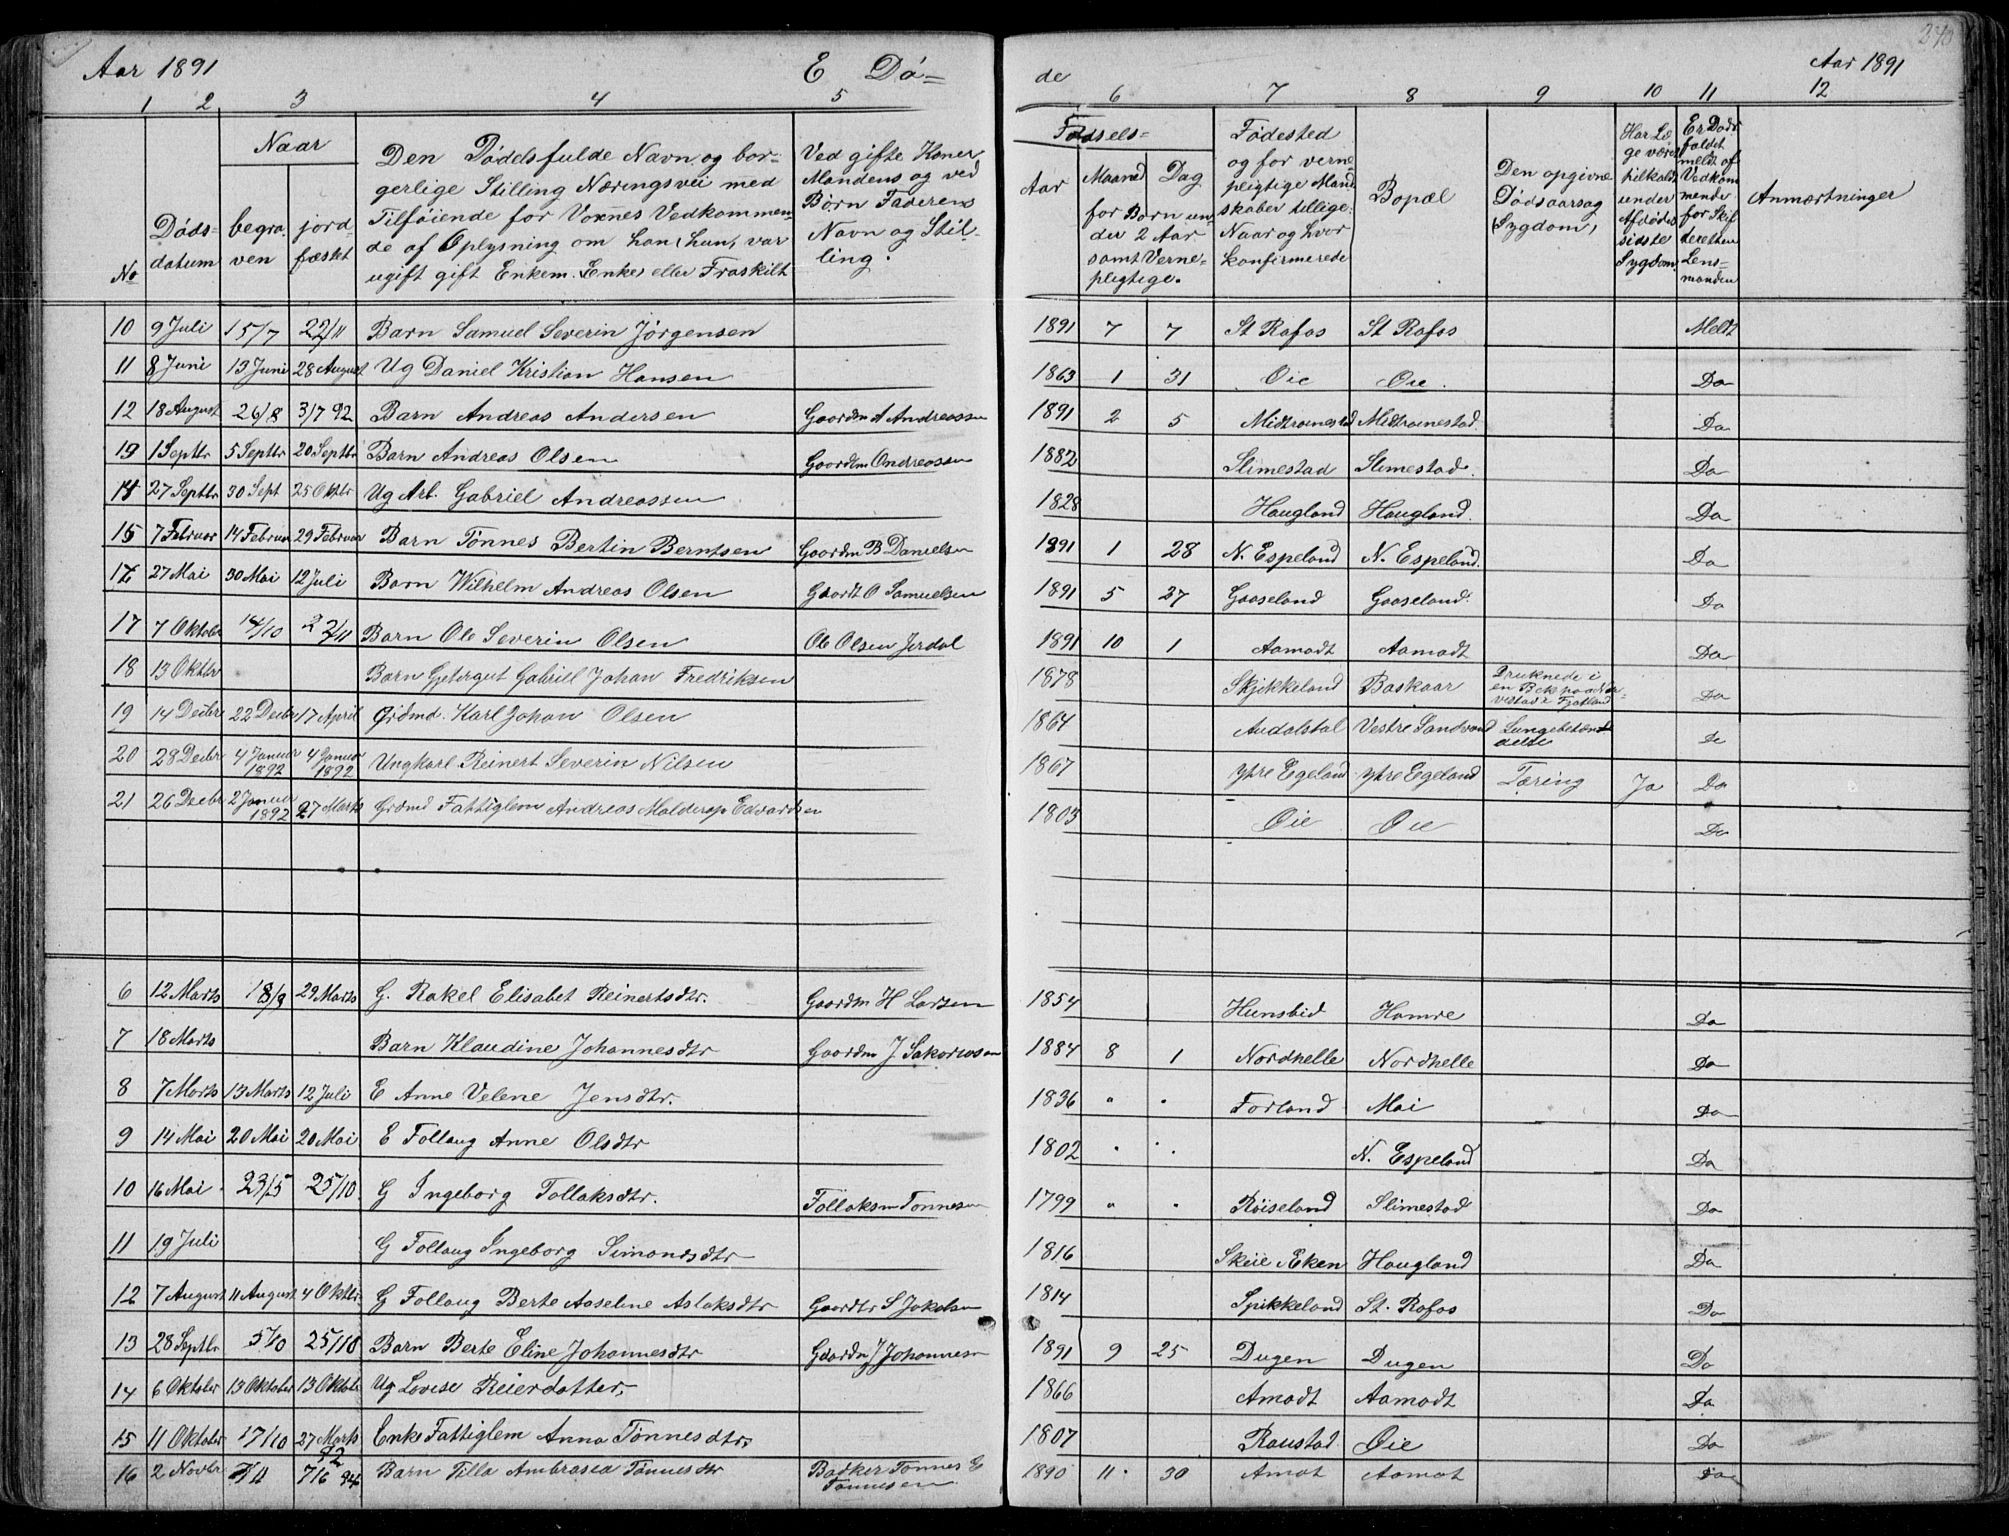 Aar 1891 E Dö= de Aar 1891
1 2 3 4 5 6 7 8 9 10 11 12
No
Döds- datum
Naar
begra. ven
jord- fæstet
Den Dödes fulde Navn og bor-
gerlige Stilling Næringsvei med
Tilföiende for Voxnes Vedkommen-
de af Oplysning om han (hun) var
ugift gift Enkem. (Enke) eller Fraskilt
Ved gifte Koner
Mandens og ved
Börn Faderens
Navn og Stil-
ling.
Födsels=
Aar
Maaned Dag
for Börn un-
der 2 Aar
samt Verne-
pligtige.
Födested
og for verne
pligtige Mand
skaber tillige.
Naar og hvor
konfirmerede
Bopæl
Den opgivne
Dödsaarsag
(Sygdom)
Har Læ
ge været
tilkaldt
under
Afdödes
sidste
Sygdom.
Er Döds
faldet
meldt af
Vedkom
mende
for Skif
teretten
Lens-
manden
Anmærkninger
10 9 Juli 15/7 22/11 Barn Samuel Severin Jörgensen 1891 7 7 St Rafos St Rafos Meldt
11 8 Juni 13 Juni 28 August Ug Daniel Kristian Hansen 1863 1 31 Öie Öie Do
12 18 August 26/8 3/7 92 Barn Andreas Andersen Gaardm A Andreassen 1891 2 5 Midtrœmestad Midtrœmestad Do
19 1 Septbr 5 Septbr 20 Septbr Barn Andreas Olsen Gaardm O Andreassen 1882 Slimestad Slimestad Do
14 27 Septbr 30 Sept 25 Oktbr Ug Arb. Gabriel Andreassen 1828 Haugland Haugland Do
15 7 Februar 14 Februar 29 Februar Barn Tönnes Bertin Berntsen Gaardm B Danielsen 1891 1 28 N. Espeland N. Espeland Do
27 Mai 30 Mai 12 Juli Barn Wilhelm Andreas Olsen Gaardt O Samuelsen 1891 5 27 Gaaseland Gaaseland Do
17 7 Oktober 14/10 22/11 Barn Ole Severin Olsen Ole Olsen Jerdal 1891 10 1 Aamodt Aamodt Do
18 13 Oktbr Barn Gjetergut Gabriel Johan Fredriksen 1878 Skjekkeland Baskaar Druknede i
en Bek paa
Fjotland Do
19 14 Decbr 22 Decbr 17 April Grdmd. Karl Johan Olsen 1864 Audalstal Vestre Sandvand Lungebetænd
delse Do
20 28 Decbr 4 Januar 1892 4 Januar 1892 Ungkarl Reinert Severin Nilsen 1867 Ytre Egeland Ytre Egeland Tæring Ja Do
21 26 Decbr 2 Januar 1892 27 Marts Grdmd Fattiglem Andreas Malderop Edvardsen 1803 Öie Öie Do
6 12 Marts 18/3 29 Marts G. Rakel Elisabet Reinertsdtr. Gaardm H Larsen 1854 Hunsbid Hamre Do
7 18 Marts Barn Klaudine Johannesdtr Gaardm J Sakariasen 1884 8 1 Nordhelle Nordhelle Do
8 7 Marts 13 Marts 12 Juli E Anne Velene Jensdtr. 1836 " " Forland Moi Do
9 14 Mai 20 Mai 20 Mai E Follaug Anne Olsdtr 1802 " " N. Espeland Do
10 16 Mai 23/5 25/10 G Ingeborg Tollaksdtr. Follaksm Tonnesen 1799 " " Röiseland Slimestad Do
11 19 Juli G Follaug Ingeborg Simonsdtr 1816 Skeie Æken Haugland Do
12 7 August 11 August 4 Oktbr. G Follaug Berte Aaseline Aslaksdtr Gaardbr S Jakobsen 1814 Spikkeland St. Rafos Do
13 28 Septbr 5/10 25/10 Barn Berte Eline Johannesdtr Gaardm J Johannesen 1891 9 25 Dugen Dugen Do
14 6 Oktober 13 Oktober 13 Oktober Ug Lovise Reierdotter, 1866 Amodt Aamodt Do
15 11 Oktober 17/10 27 Marts 92 Enke Fattiglem Anna Tönnesdtr. 1807 Raustad Öie Do
16 2 Novbr 7/11 7/6 94 Barn Tilla Ambrosea Tönnesdtr Bödker Tonnes E
Tonnesen 1890 11 30 Amot Aamot Do